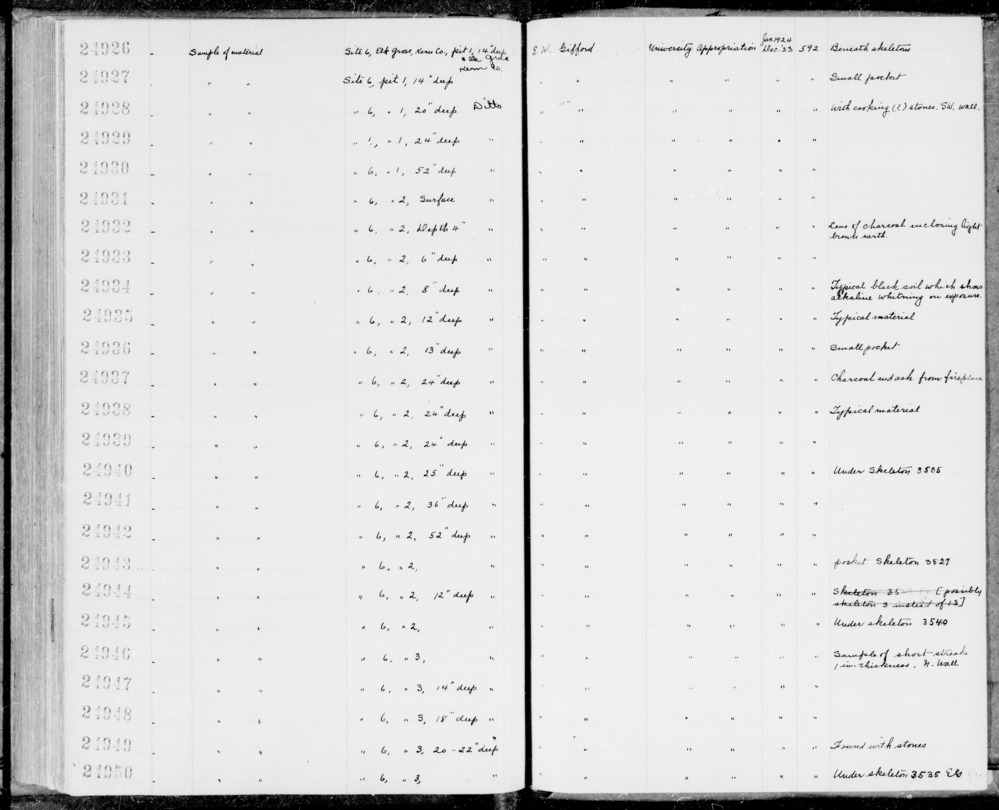 24926 Sample of material Site 6, Elk Grove, Kern Co., pit 1, 14" deep E. W. Gifford University Appropriation Jan 1924 Dec '23 592 Beneath skeleton
Kern Co.
24927 " " Site 6, pit 1, 14" deep " " " " " " Small pocket
24928 " " " 6, " 1, 20" deep Ditto " " " " " " With cooking (?) stones. SW. Wall.
24929 " " " 1, " 1, 24" deep " " " " " " "
24930 " " " 6, " 1, 52" deep " " " " " " "
24931 " " " 6, " 2, Surface " " " " " " "
24932 " " " 6, " 2, Depth 4" " " " " " " " Lens of charcoal enclosing light
brown earth.
24933 " " " 6, " 2, 6" deep " " " " " " "
24934 " " " 6, " 2, 8" deep " " " " " " " Typical black soil which shows
alkaline whitning on exposure.
24935 " " " 6, " 2, 12" deep " " " " " " " Typical material
24936 " " " 6, " 2, 13" deep " " " " " " " Small pocket
24937 " " " 6, " 2, 24" deep " " " " " " " Charcoal and ash from fireplace
24938 " " " 6, " 2, 24" deep " " " " " " " Typical material
24939 " " " 6, " 2, 24" deep " " " " " " "
24940 " " " 6, " 2, 25" deep " " " " " " " Under Skeleton 3535
24941 " " " 6, " 2, 36" deep " " " " " " "
24942 " " " 6, " 2, 52" deep " " " " " " "
24943 " " " 6, " 2, " " " " " " pocket Skeleton 3527
24944 " " " 6, " 2, 12" deep " " " " " " " Skeleton 35 [possibly
skeleton 3 instead of 13]
24945 " " " 6, " 2, " " " " " " Under skeleton 3540
24946 " " " 6, " 3, " " " " " " " Sample of short streak
1 in. thickness. N. Wall
24947 " " " 6, " 3, 14" deep " " " " " " "
24948 " " " 6, " 3, 18" deep " " " " " " "
24949 " " " 6, " 3, 20-22" deep " " " " " " " Found with stones
24950 " " " 6, " 3, " " " " " " " Under skeleton 3535